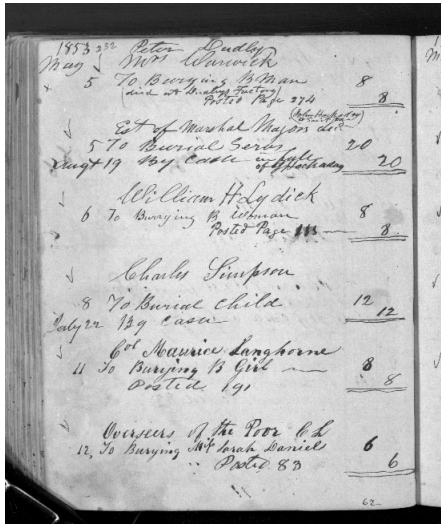 1853 232 Peter Dudley
May Mrs Warwick
5 To Burying B Man 8
(died at Dudleys Factory)
Posted Page 274 8
Est of Marshal Majors dec
5 To Burial Servs 20
Augt 19 By Cash in full 20
William H Lydick
6 To Burying B Woman 8
Posted Page 8
Charles Simpson
8 To Burial Child 12
July 22 By Cash 12
Col Maurice Langhorne
11 To Burying B Girl 8
Posted 191 8
Overseers of the Poor C L
12, To Burying Sarah Daniels 6
Posted 83 6
62